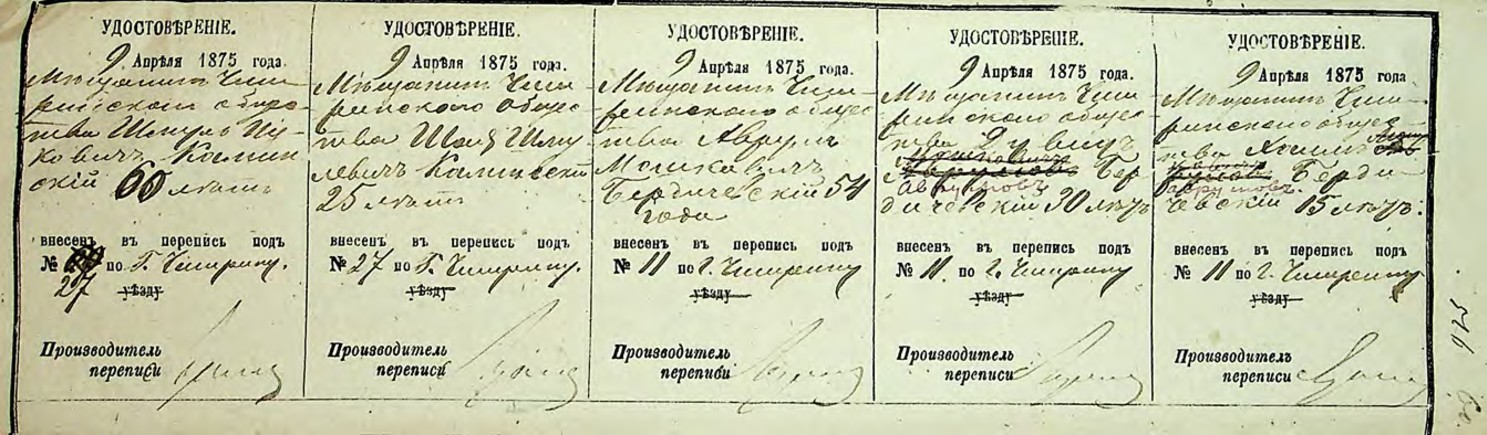 УДОСТОВѢРЕНІЕ.
9 Апрѣля 1875 года.
Мѣщанинъ Чиги-
ринскаго общес-
тва Шмуль Иц-
ковичъ Камин
скій 60 лѣтъ
внесенъ въ перепись подъ
№ по Г. Чигирину.
27 уѣзду
Производитель
переписи
УДОСТОВѢРЕНІЕ.
9 Апрѣля 1875 года.
Мѣщанинъ Чиги
ринскаго общес
тва Шму
левичъ Каминскій
25 лѣтъ
внесенъ въ перепись подъ
№ 27 по Г. Чигирину.
уѣзду
Производитель
переписи
УДОСТОВѢРЕНІЕ.
9 Апрѣля 1875 года.
Мѣщанинъ Чиги
ринскаго общес
тва Аврумъ
Мошковичъ
Бердичевскій 54
года
внесенъ въ перепись подъ
№ 11 по г. Чигирину
уѣзду
Производитель
переписи
УДОСТОВѢРЕНІЕ.
9 Апрѣля 1875 года.
Мѣщанинъ Чиги
ринскаго общес
тва Дувидъ
Мошковичъ
Аврумовъ Бер
аврумовъ
дичевскій 30 лѣтъ
внесенъ въ перепись подъ
№ 11 по г. Чигирину
уѣзду
Производитель
переписи
УДОСТОВѢРЕНІЕ.
9 Апрѣля 1875 года
Мѣщанинъ Чиги-
ринскаго общес
тва Хаимъ
Берди
аврумовъ.
чевскій 15 лѣтъ.
внесенъ въ перепись подъ
№ 11 по г. Чигирину
уѣзду
Производитель
переписи